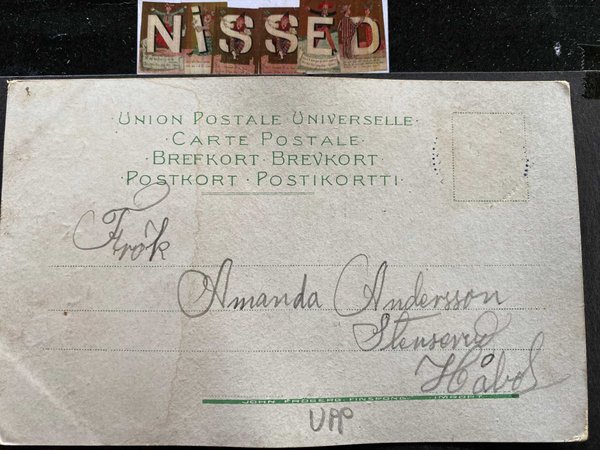 NiSSED
UNION POSTALE UNIVERSELLE·
·CARTE POSTALE·
·BREFKORT·BREVKORT·
POSTKORT·POSTIKORTTI·
Frök
Amanda Andersson
Stenserud
Håbol
JOHN FRÖBERG FINSPONG. IMPORT.
UPP